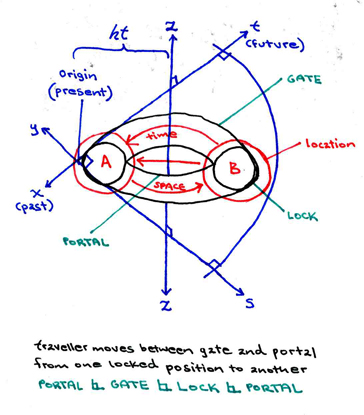 ht
z
t
(future)
Origin
(present)
GATE
y
time
location
A
B
x
(past)
SPACE
LOCK
PORTAL
z
s
traveller moves between gate and portal
from one locked position to another
PORTAL GATE LOCK PORTAL